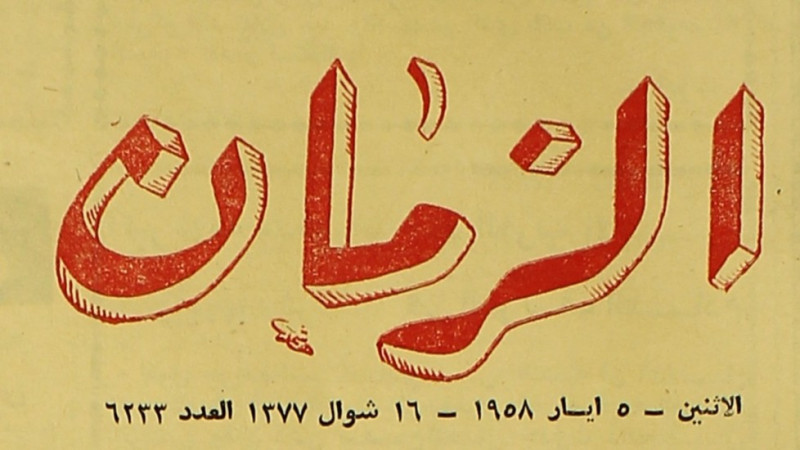 الزمان
الاثنين – ٥ ايار ١٩٥٨ – ١٦ شوال ١٣٧٧ العدد ٦٢٣٣